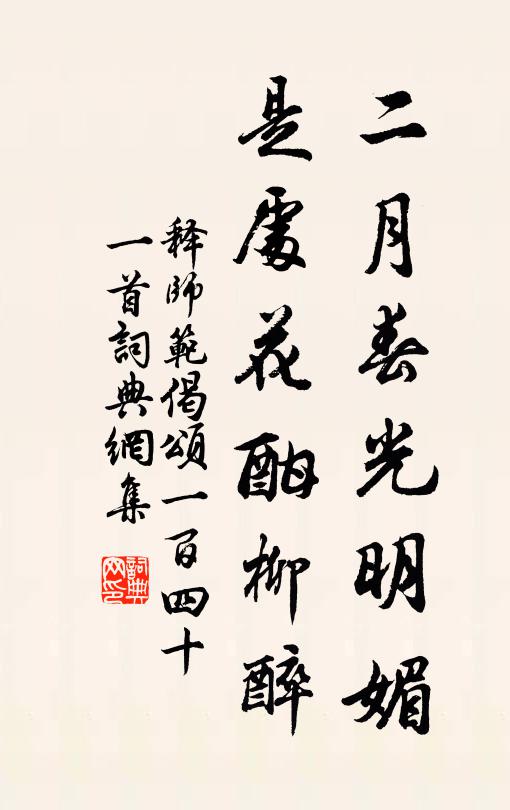 二月春光明媚
是處花酣柳醉
释師範偈頌一百四十
一首詞典網集
詞典網印